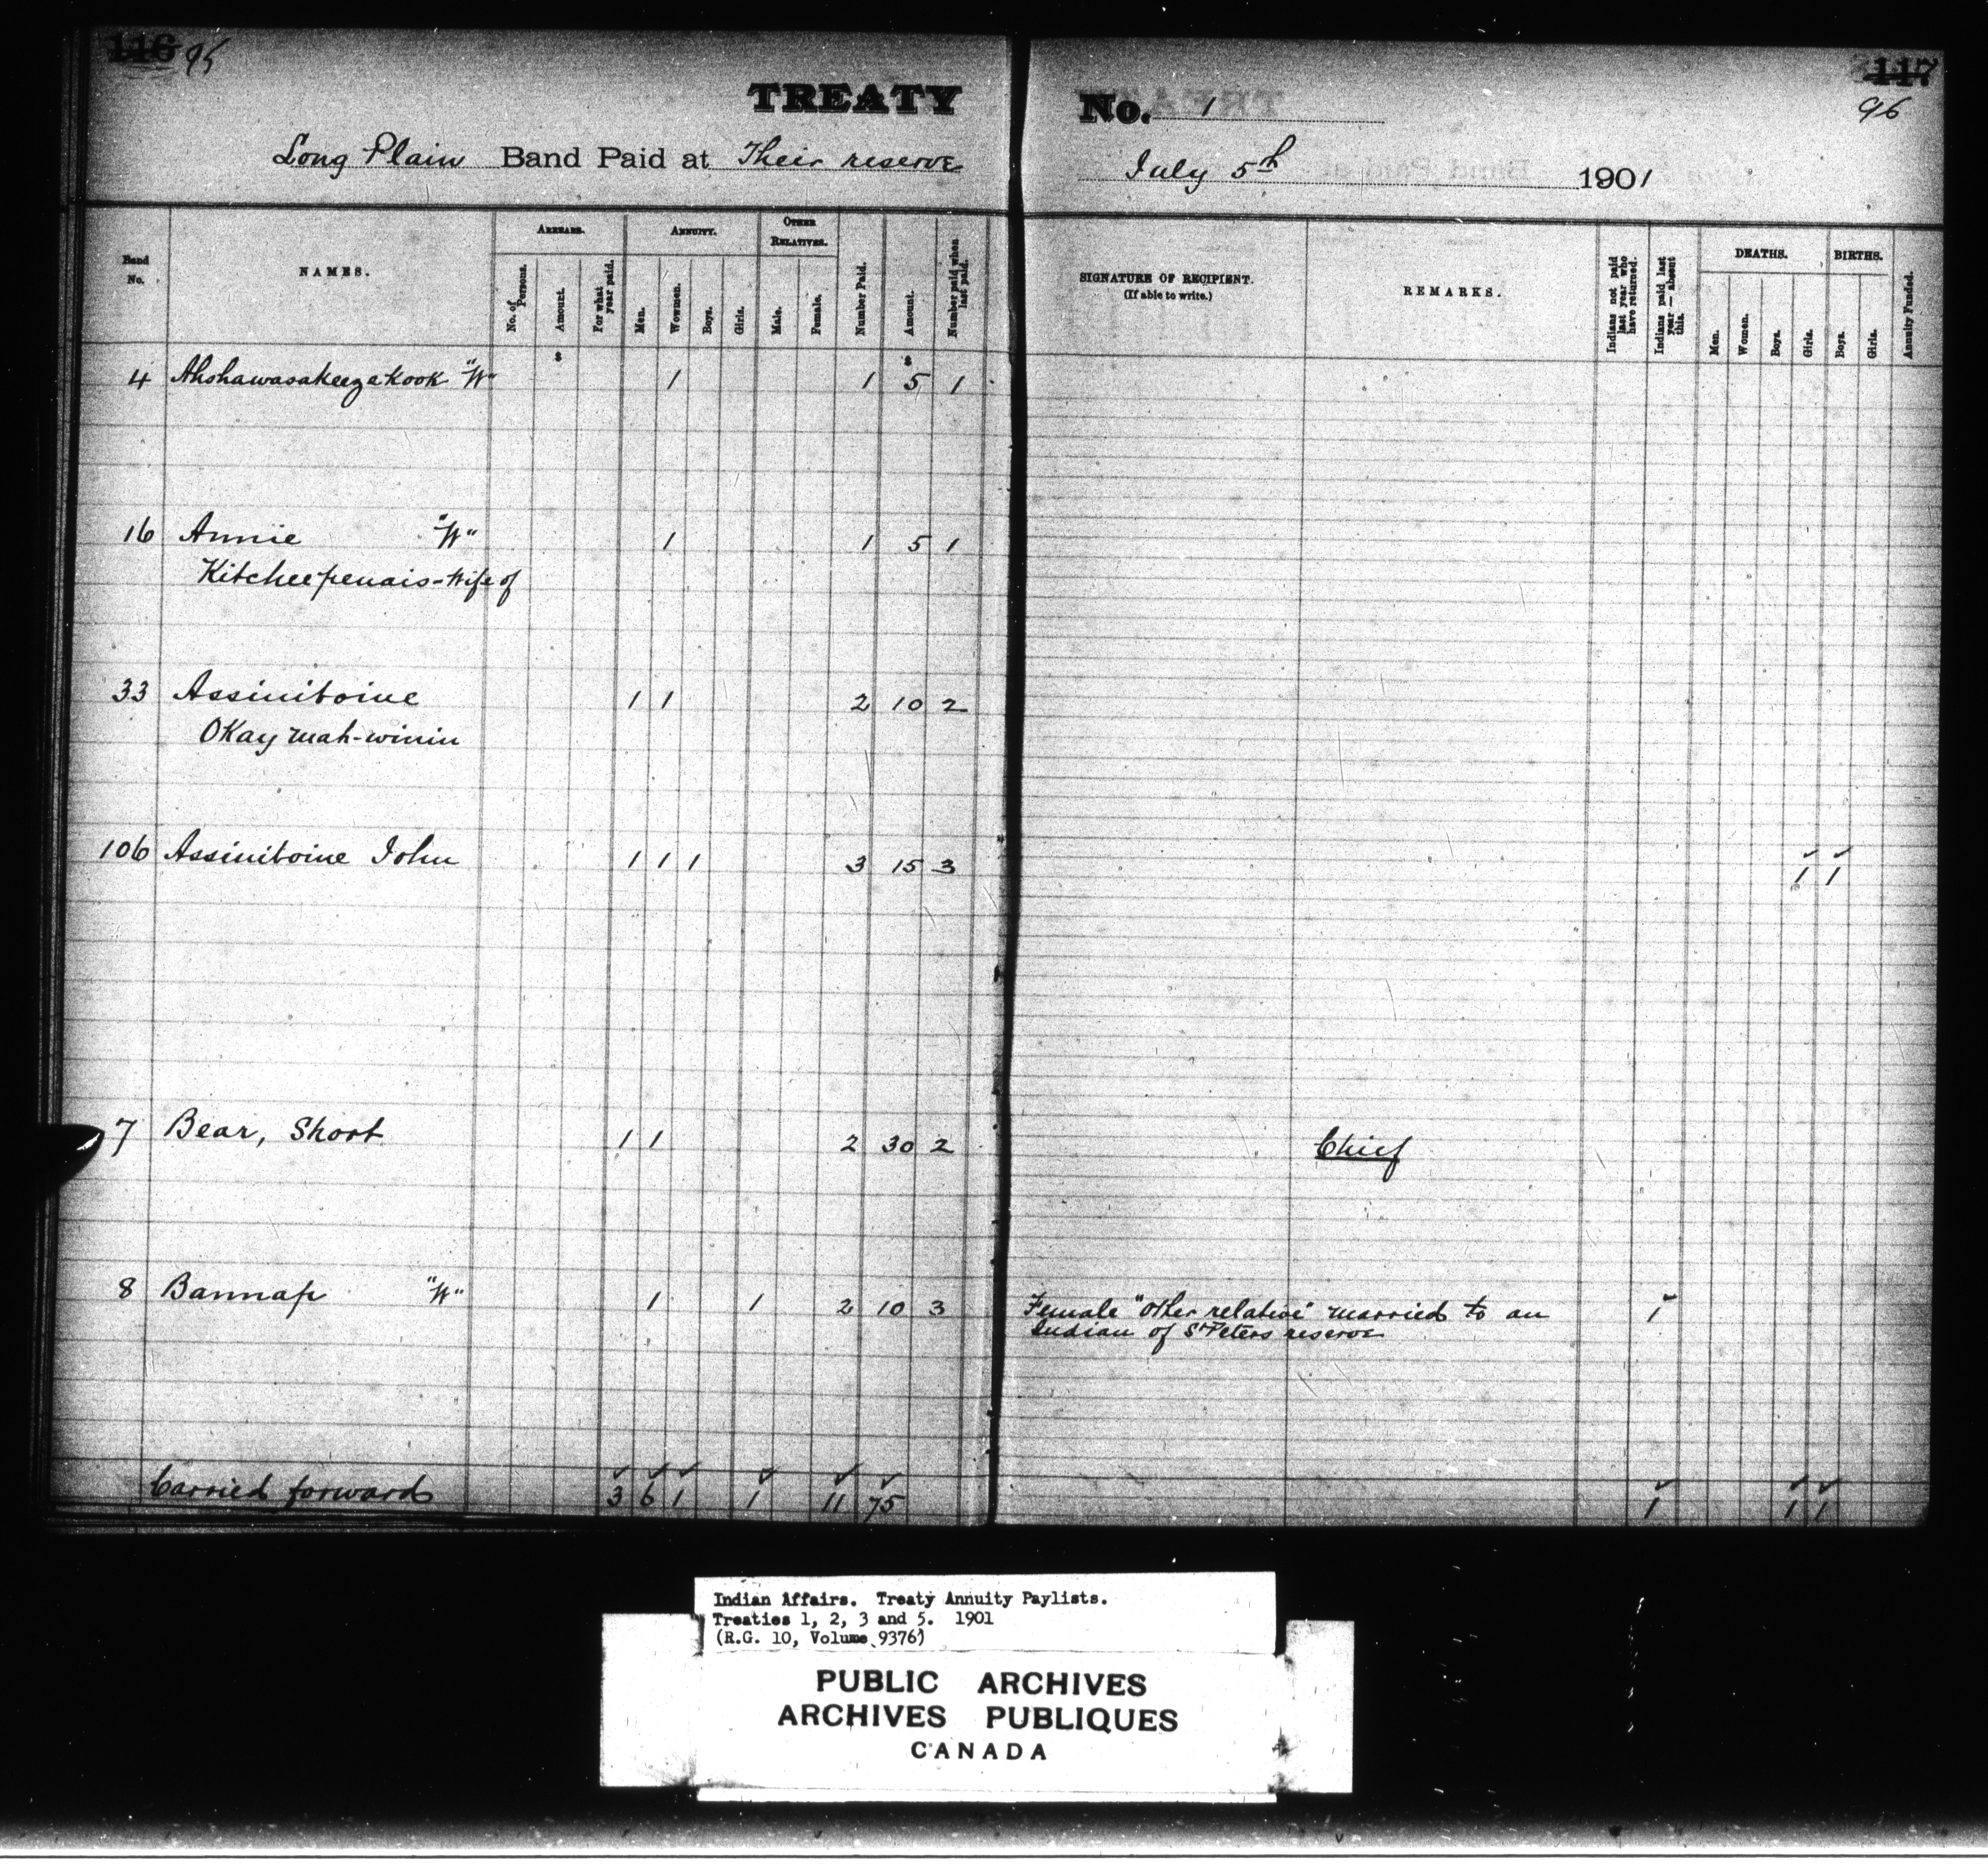 116 95
TREATY
Long Plain Band Paid at Their reserve
Band No.
NAMES.
ARREARS.
No. of Persons.
Amount.
For what year paid.
ANNUITY.
Men.
Wowmen.
Boys.
Girls.
OTHER RELATIVES.
Male.
Female.
Number Paid.
Amount.
Number paid when last paid.
$ $
4 Ahshawasakeezakook "W" 1 1 5 1
16 Annie "W" 1 1 5 1
Kitcheepenais - Wife of
33 Assiniboine 1 1 2 10 2
Okay mah-winin
106 Assiniboine John 1 1 1 3 15 3
7 Bear, Short 1 1 2 30 2
8 Bannap "W" 1 1 2 10 3
Carried forward 3 6 1 1 11 75
117
96
No. 1
July 5th 1901
SIGNATURE OF RECIPIENT.
(If able to write.)
REMARKS.
Indians not paid last year who have returned.
Indians paid last year — absent this.
DEATHS.
Men.
Women.
Boys.
Girls.
BIRTHS.
Boys.
Girls.
Annuity Funded.
1 1
Chief
Female "other relative" married to an 1
Indian of St Peters reserve
1 1 1
Indian Affairs. Treaty Annuity Paylists.
Treaties 1, 2, 3 and 5. 1901
(R.G. 10, Volume 9376)
PUBLIC ARCHIVES
ARCHIVES PUBLIQUES
CANADA